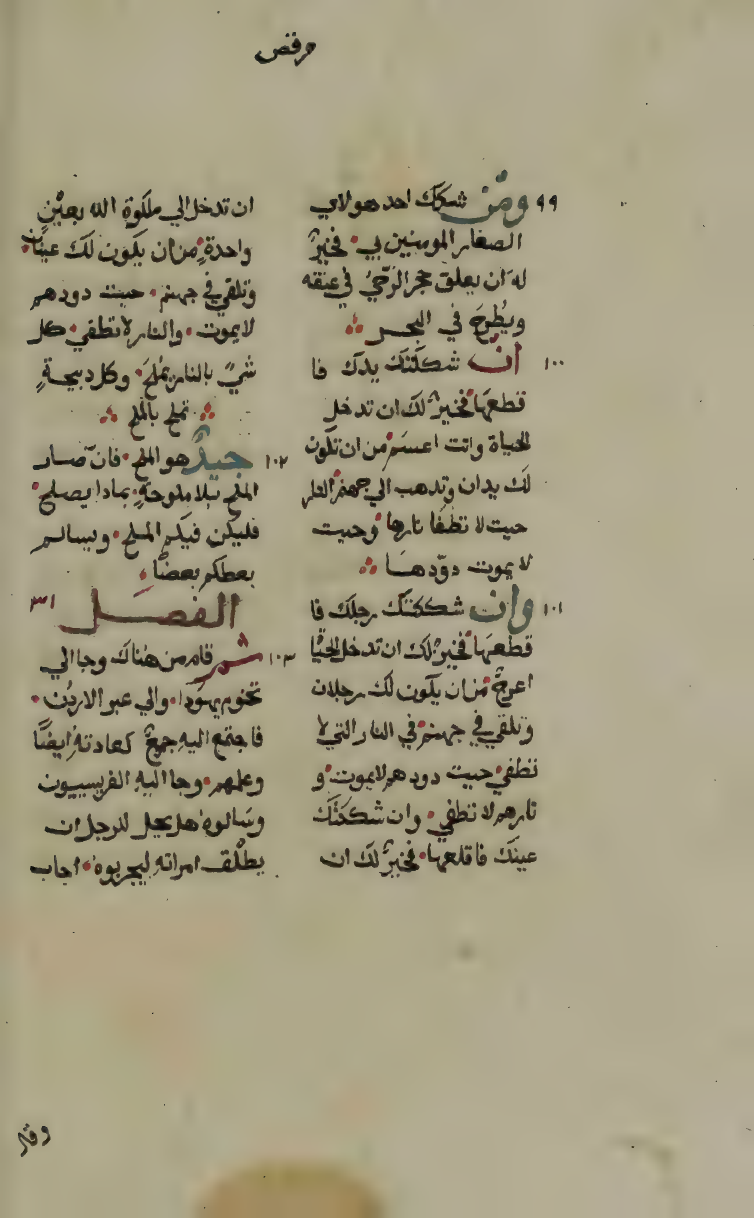 مرقص
٩٩ ومن شكك احد هولاي
الصغار المومنين بي · فخيرٌ
له ان يعلق حجر الرَحيُ في عنقه
ويُطرحَ في البحر
١٠٠ ان شككتك يدك فا
قطعهَا فخيرٌ لك ان تدخل
الحياة وانت اعسم · من ان تكون
لك يدان وتذهب الي جهنم النار
حيت لا تطفا نارها وحيت
لا يموت دوّدهَا
١٠١ وان شككتك رجلك فا
قطعهَا فخيرٌ لك ان تدخل الحَيُاة
اعرجَ من ان يكون لك رجلان
وتلقي في جهنم في النار التي لا
تطفي حيت دودهم لايموت و
نارهم لا تطفي · وان شككتك
عينك فاقلعها · فخيرٌ لك ان
ان تدخل الي ملكوة الله بعيْنٍ
واحدةٍ · من ان يكون لك عينان ·
وتلقي في جهنم · حيت دودهم
لايموت · والنار لا تطفي · كل
شيً بالنار يُملحَ · وكل دبيحةٍ
تملح بالملح
١٠٢ جيدٌ هو الملح · فان صار
الملح بلا ملوحةٍ · بمادا يصلح ·
فليكن فيكم الملح · ويسالم
بعضكم بعضًا ·
الفصل ٣١
١٠٣ ثم قام من هناك وجا الي
تخوم يهودا · والي عبر الاردُن ·
فاجتمع اليهِ جمعٌ كعادتهُ ايضًا
وعلمهم · وجا اليهِ الفريسيون
وسَالوهُ هل يحل للرجل ان
يطلق امراته ليجربوهُ · اجاب
وقال